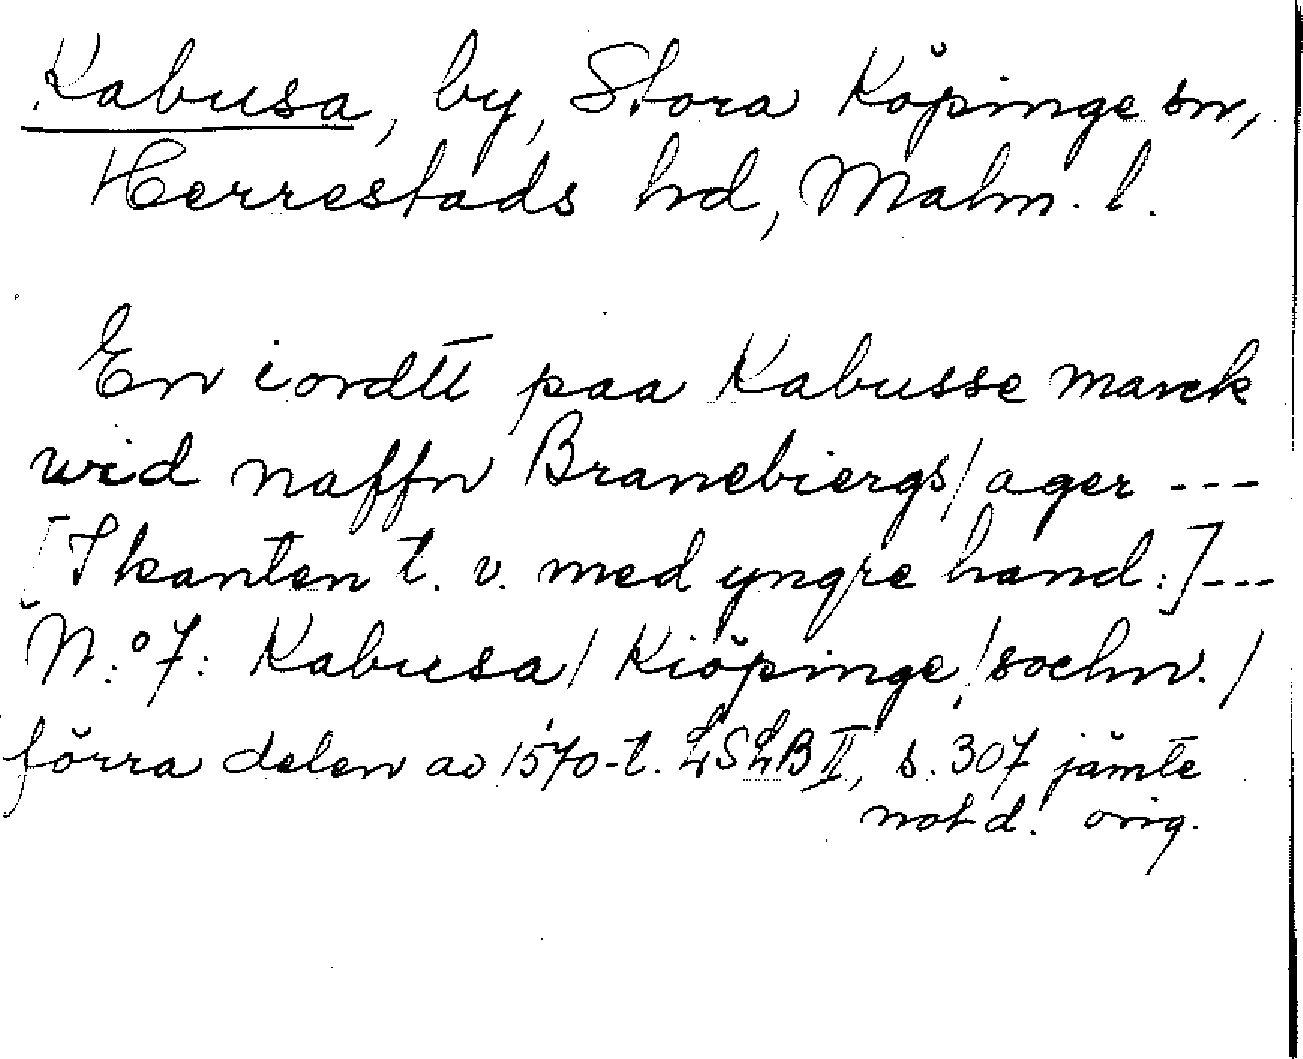 Kabusa, by, Stora Köpinge sn,
Herrestads hd, Malm. l.
En iordtt paa Kabusse marck
wid naffn Branebiergs/ager ---
[I kanten t. v. med yngre hand:]---
N:o 7: Kabusa/Kiöpinge/sochn./
förra delen av 1570-t. LSLB II, s. 307 jämte
not d. orig.